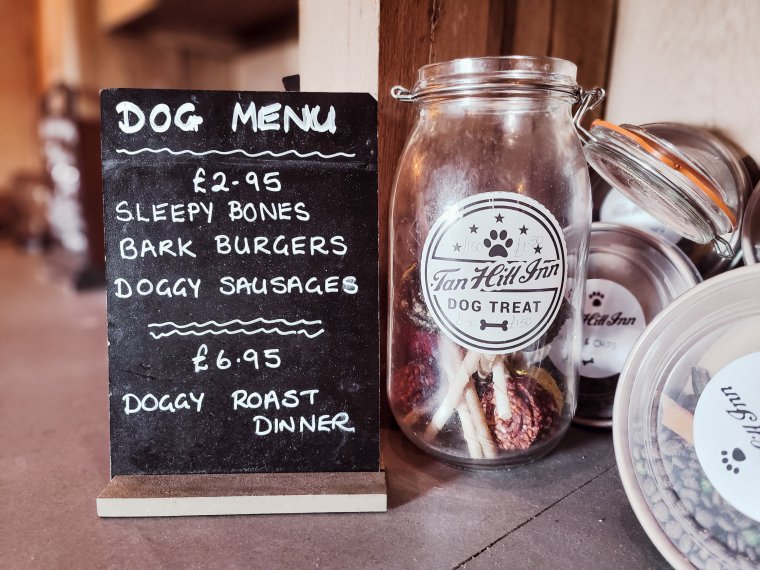 DOG MENU
£2.95
SLEEPY BONES
BARK BURGERS
DOGGY SAUSAGES
£6.95
DOGGY ROAST
DINNER
Tan Hill Inn
DOG TREAT
Hill Inn
& CHIPS
Inn